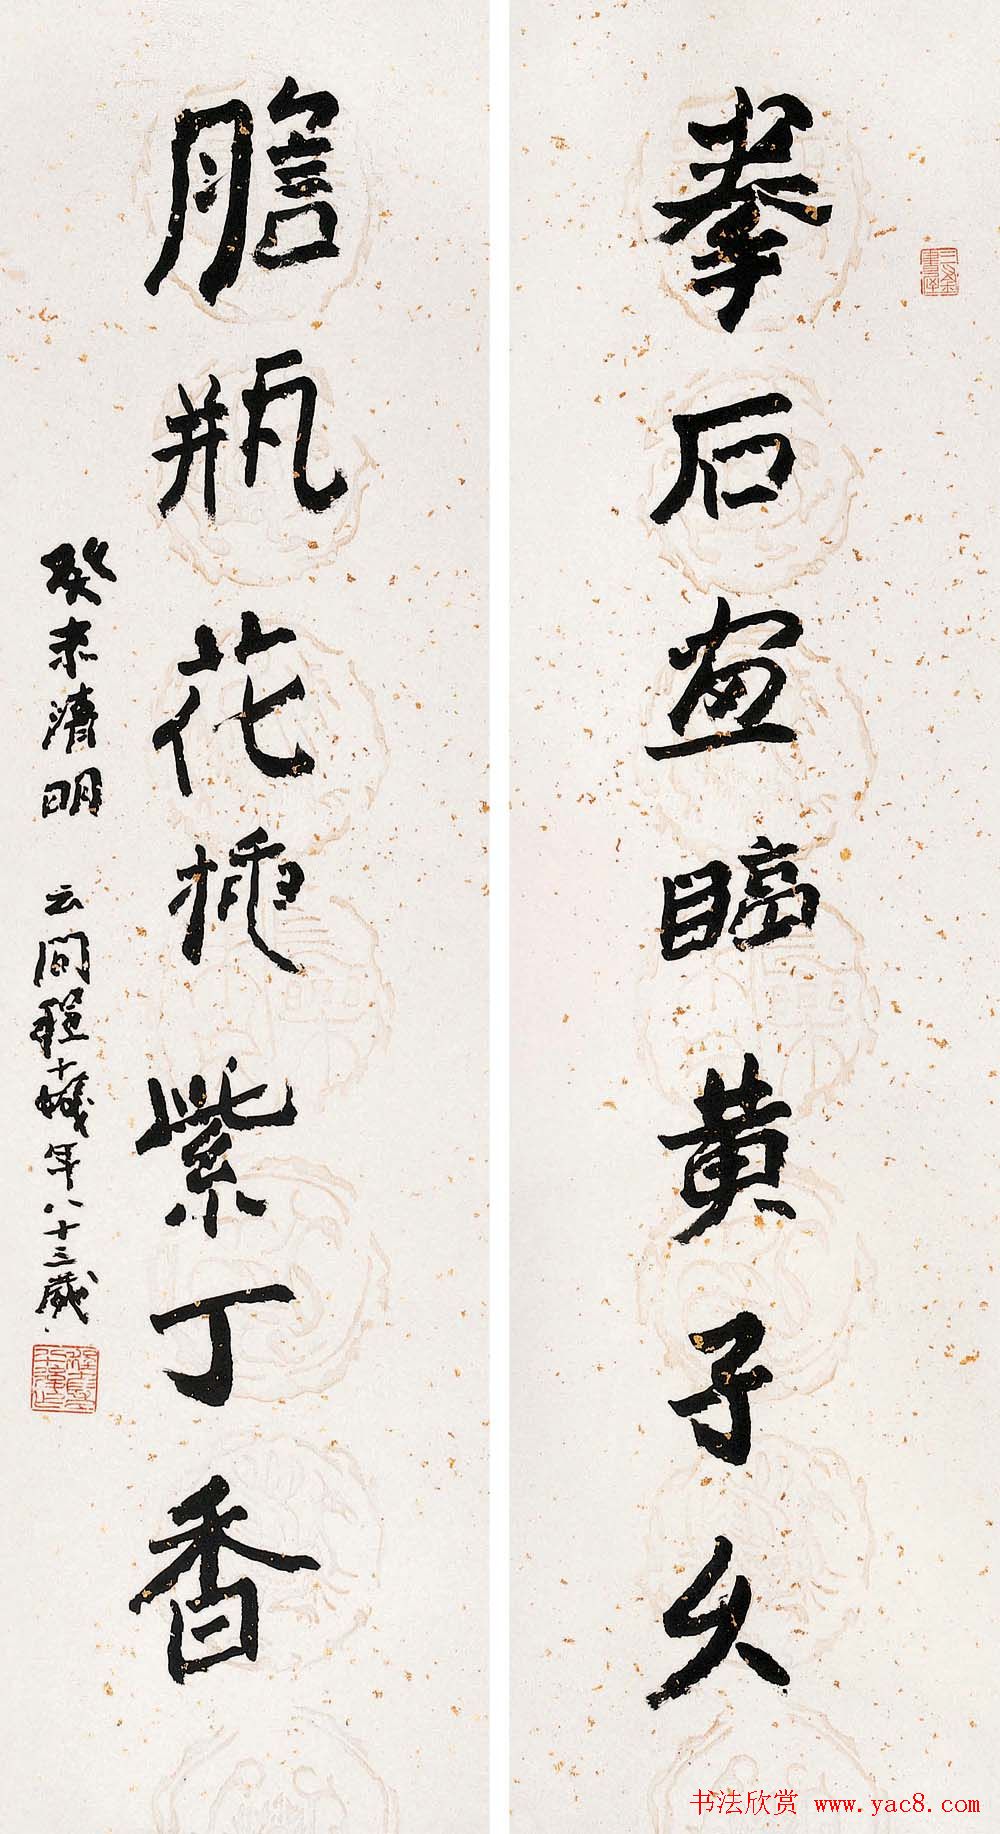 拳石画临黄子久
胆瓶花插紫丁香
癸未清明 云间程十发年八十三岁
书法欣赏 www.yac8.com